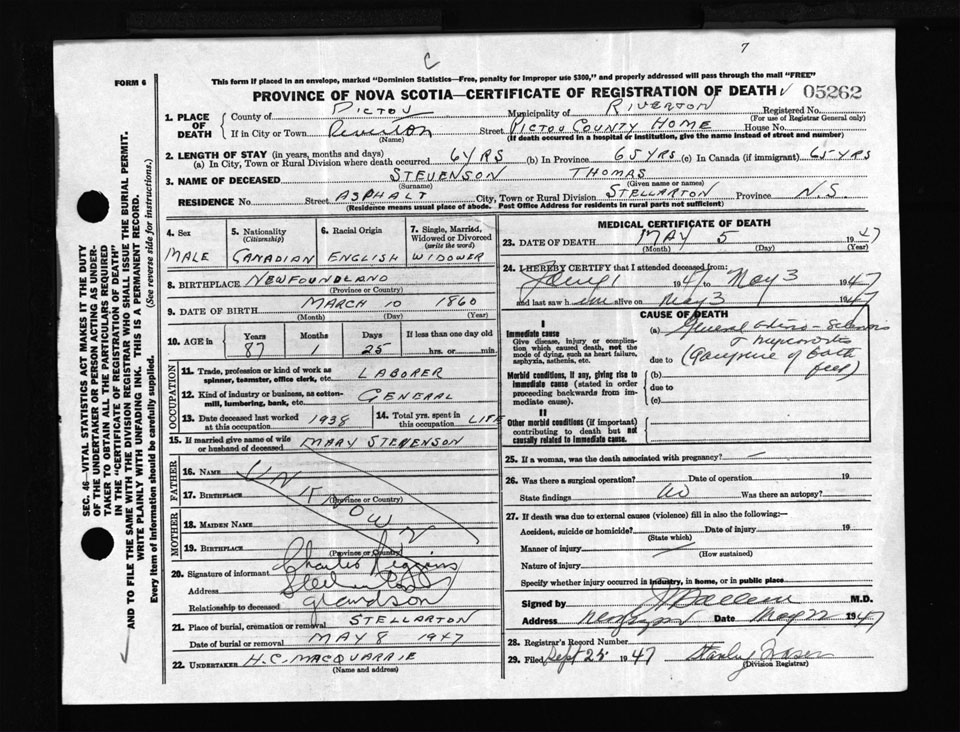 C
7
FORM 6
This form if placed in an envelope, marked "Dominion Statistics—Free, penalty for improper use $300," and properly addressed will pass through the mail "FREE"
PROVINCE OF NOVA SCOTIA—CERTIFICATE OF REGISTRATION OF DEATH 05262
1. PLACE OF DEATH
County of PICTOU Municipality of RIVERTON Registered No.
(For use of Registrar General only)
If in City or Town Riverton Street PICTOU COUNTY HOME House No.
(Name) (If death occurred in a hospital or institution, give the name instead of street and number)
2. LENGTH OF STAY (in years, months and days)
(a) In City, Town or Rural Division where death occurred 6 YRS (b) In Province 65 YRS (c) In Canada (if immigrant) 65 YRS
3. NAME OF DECEASED STEVENSON THOMAS
(Surname) (Given name or names)
RESIDENCE No. Street ASPHALT City, Town or Rural Division STELLARTON Province N.S.
(Residence means usual place of abode. Post Office Address for residents in rural parts not sufficient)
4. Sex
MALE
5. Nationality (Citizenship)
CANADIAN
6. Racial Origin
ENGLISH
7. Single, Married, Widowed or Divorced (write the word)
WIDOWER
8. BIRTHPLACE NEWFOUNDLAND
(Province or Country)
9. DATE OF BIRTH MARCH 10 1860
(Month) (Day) (Year)
10. AGE in Years Months Days If less than one day old
87 1 25 hrs. or min.
OCCUPATION
11. Trade, profession or kind of work as spinner, teamster, office clerk, etc. LABORER
12. Kind of industry or business, as cotton-mill, lumbering, bank, etc. GENERAL
13. Date deceased last worked at this occupation 1938
14. Total yrs. spent in this occupation LIFE
15. If married give name of wife or husband of deceased MARY STEVENSON
FATHER
16. NAME
17. BIRTHPLACE
(Province or Country)
UNKNOWN
MOTHER
18. MAIDEN NAME
19. BIRTHPLACE
(Province or Country)
20. Signature of informant Charles
Address
Relationship to deceased grandson
21. Place of burial, cremation or removal STELLARTON
Date of burial or removal MAY 8 1947
22. UNDERTAKER H.C. MACQUARRIE
(Name and address)
MEDICAL CERTIFICATE OF DEATH
23. DATE OF DEATH MAY 5 1947
(Month) (Day) (Year)
24. I HEREBY CERTIFY that I attended deceased from:
to May 3 1947
and last saw him alive on May 3 1947
CAUSE OF DEATH
I
Immediate cause
Give disease, injury or complication which caused death, not the mode of dying, such as heart failure, asphyxia, asthenia, etc.
(a) General
due to
Morbid conditions, if any, giving rise to immediate cause (stated in order proceeding backwards from immediate cause).
(b)
due to
(c)
II
Other morbid conditions (if important) contributing to death but not causally related to immediate cause.
25. If a woman, was the death associated with pregnancy? —
26. Was there a surgical operation? Date of operation 19
State findings Was there an autopsy?
27. If death was due to external causes (violence) fill in also the following:—
Accident, suicide or homicide? Date of injury 19
(State which)
Manner of injury
(How sustained)
Nature of injury
Specify whether injury occurred in industry, in home, or in public place
Signed by M.D.
Address Date May 22 1947
28. Registrar's Record Number
29. Filed Sept 25 1947 Stanley Fraser
(Division Registrar)
SEC. 46—VITAL STATISTICS ACT MAKES IT THE DUTY
OF THE UNDERTAKER OR PERSON ACTING AS UNDER-
TAKER TO OBTAIN ALL THE PARTICULARS REQUIRED
IN THE "CERTIFICATE OF REGISTRATION OF DEATH"
AND TO FILE THE SAME WITH THE DIVISION REGISTRAR WHO SHALL ISSUE THE BURIAL PERMIT.
WRITE PLAINLY WITH UNFADING INK. THIS IS A PERMANENT RECORD.
Every item of Information should be carefully supplied. (See reverse side for instructions.)